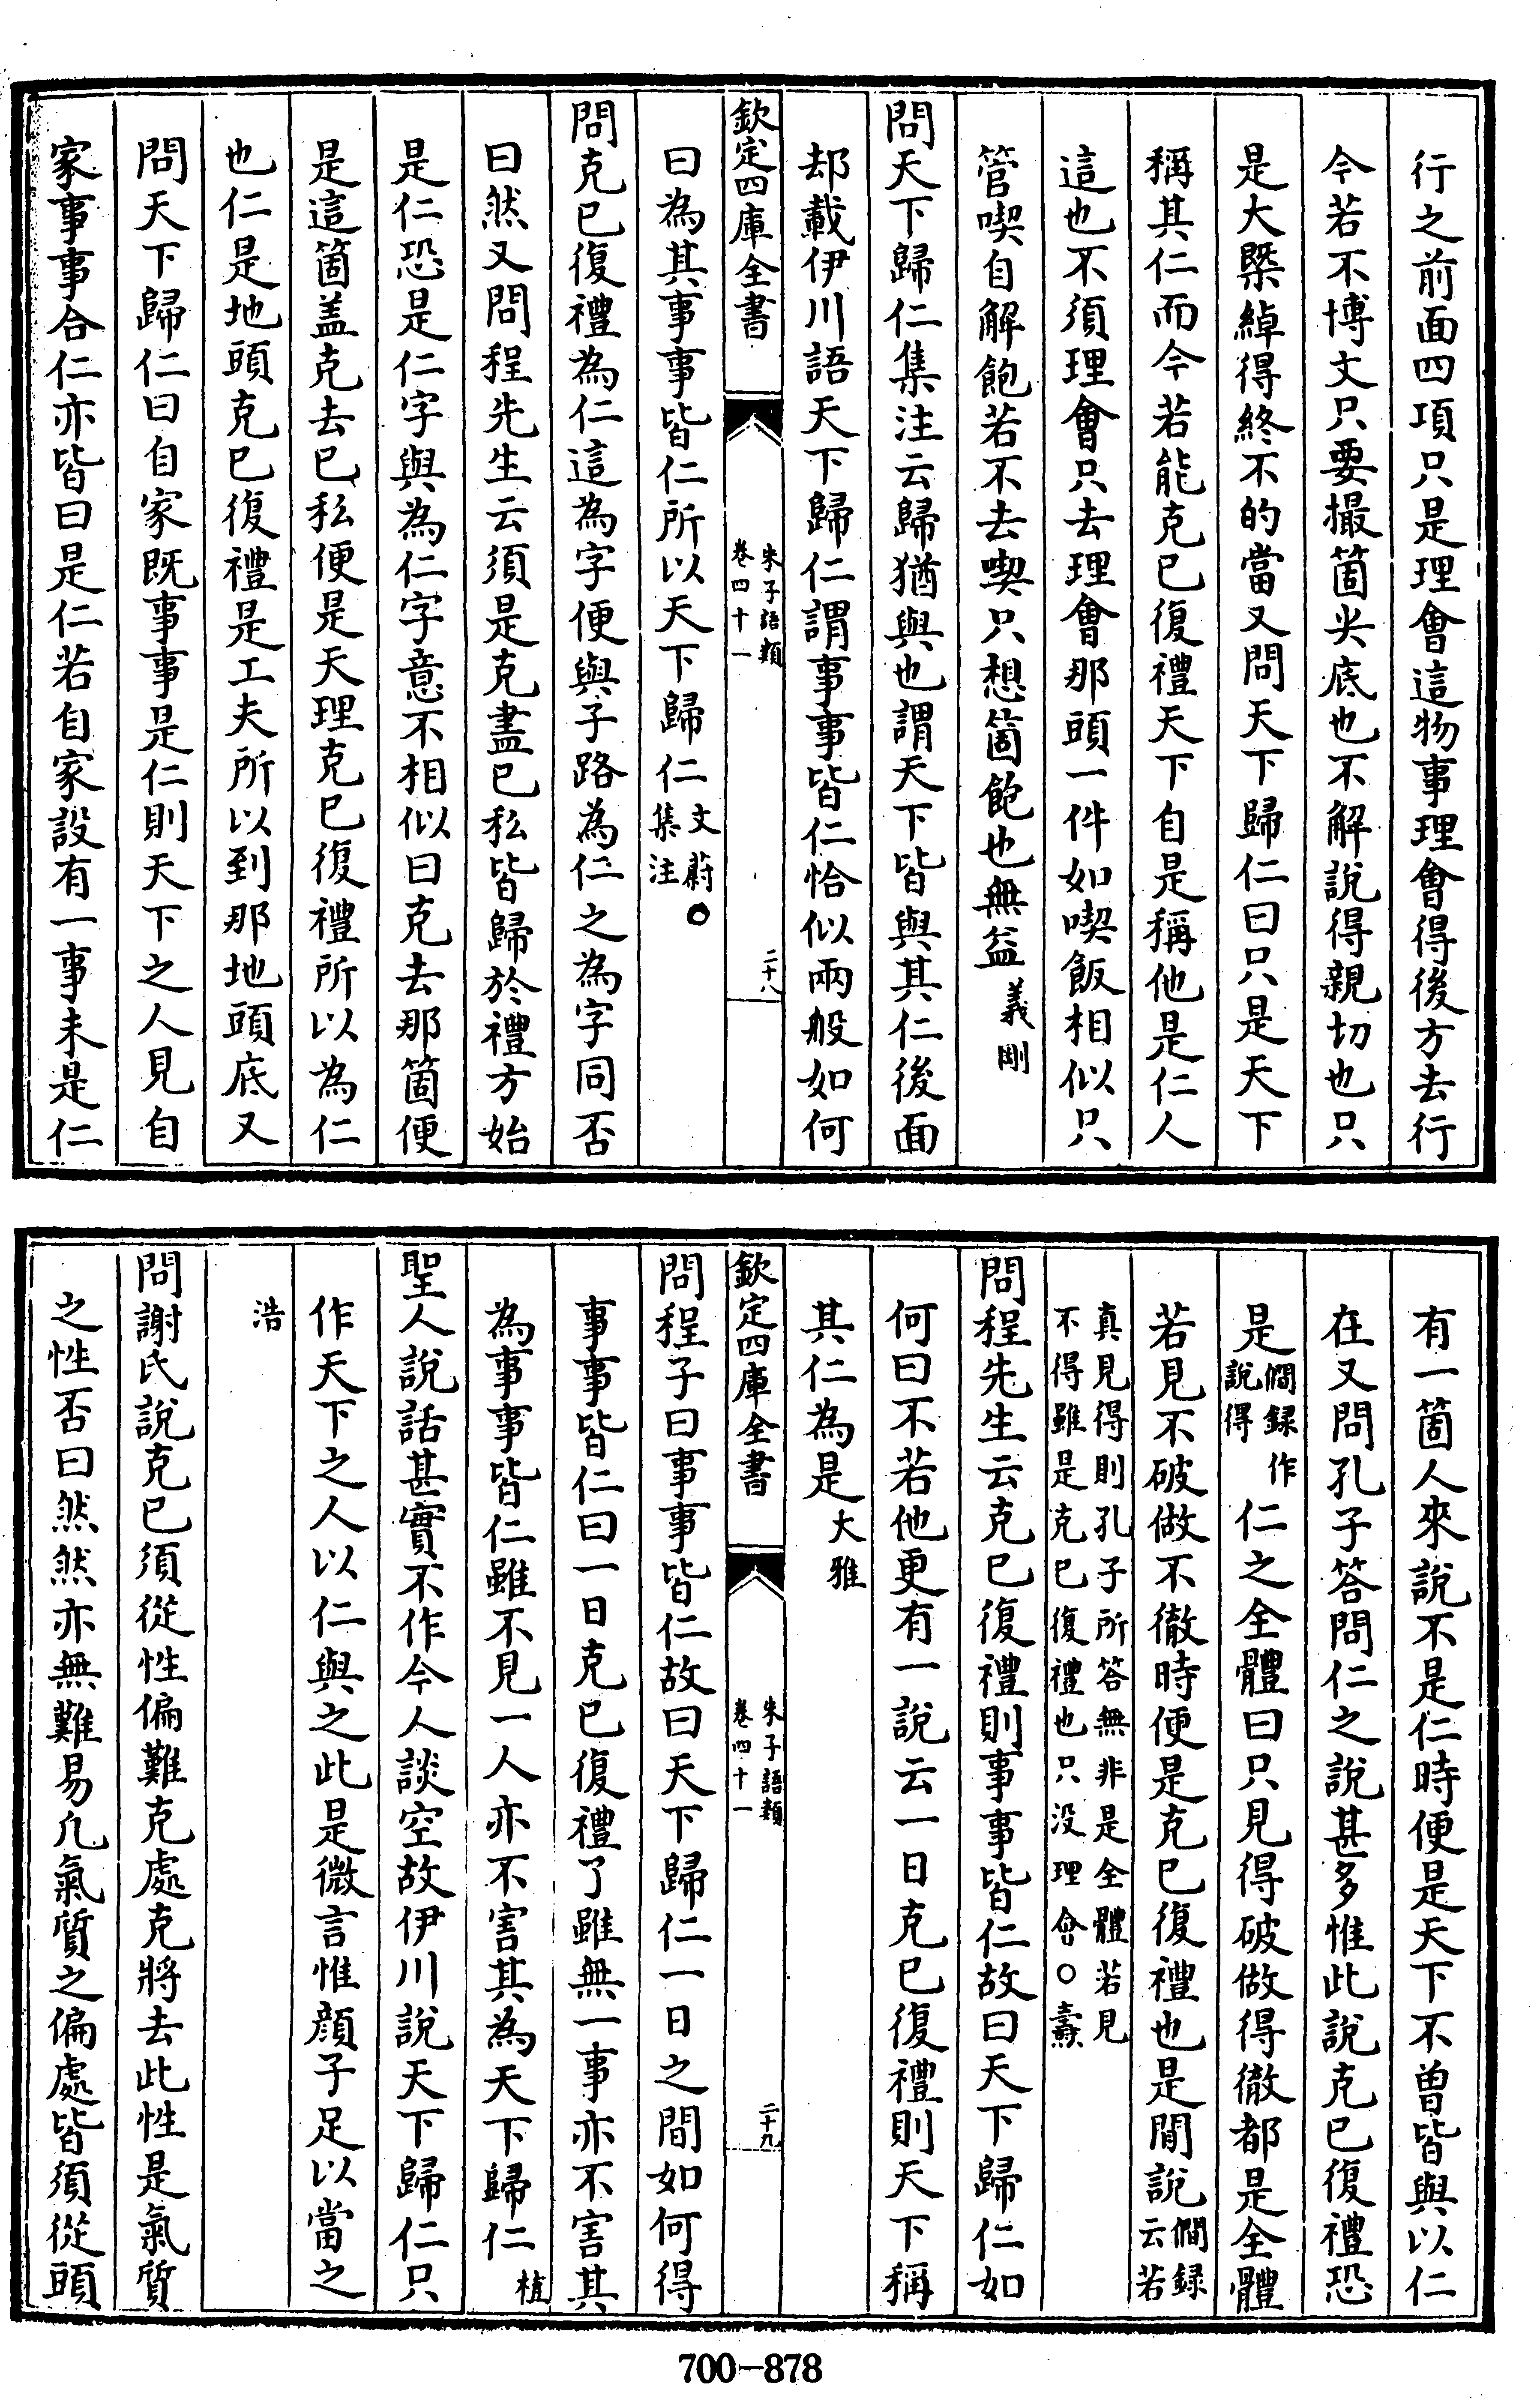 行之前面四項只是理會這物事理會得後方去行
今若不博文只要撮箇尖底也不解說得親切也只
是大槩綽得終不的當又問天下歸仁曰只是天下
稱其仁而今若能克已復禮天下自是稱他是仁人
這也不須理會只去理會那頭一件如喫飯相似只
管喫自解飽若不去喫只想箇飽也無益義剛
問天下歸仁集注云歸猶與也謂天下皆與其仁後面
却載伊川語天下歸仁謂事事皆仁恰似兩般如何
欽定四庫全書
朱子語類
卷四十一
二十八
曰為其事事皆仁所以天下歸仁文蔚○集注
問克已復禮為仁這為字便與子路為仁之為字同否
曰然又問程先生云須是克盡已私皆歸於禮方始
是仁恐是仁字與為仁字意不相似曰克去那箇便
是這箇盖克去已私便是天理克已復禮所以為仁
也仁是地頭克已復禮是工夫所以到那地頭底又
問天下歸仁曰自家既事事是仁則天下之人見自
家事事合仁亦皆曰是仁若自家設有一事未是仁
有一箇人來說不是仁時便是天下不曽皆與以仁
在又問孔子答問仁之說甚多惟此說克已復禮恐
是僩録作說得仁之全體曰只見得破做得徹都是全體
若見不破做不徹時便是克已復禮也是閒說僩録云若
真見得則孔子所答無非是全體若見
不得雖是克已復禮也只没理會○燾
問程先生云克已復禮則事事皆仁故曰天下歸仁如
何曰不若他更有一說云一日克已復禮則天下稱
其仁為是大雅
欽定四庫全書
朱子語類
卷四十一
二十九
問程子曰事事皆仁故曰天下歸仁一日之間如何得
事事皆仁曰一日克已復禮了雖無一事亦不害其
為事事皆仁雖不見一人亦不害其為天下歸仁植
聖人說話甚實不作今人談空故伊川說天下歸仁只
作天下之人以仁與之此是微言惟顔子足以當之
浩
問謝氏說克已須從性偏難克處克將去此性是氣質
之性否曰然然亦無難易凡氣質之偏處皆須從頭
700-878